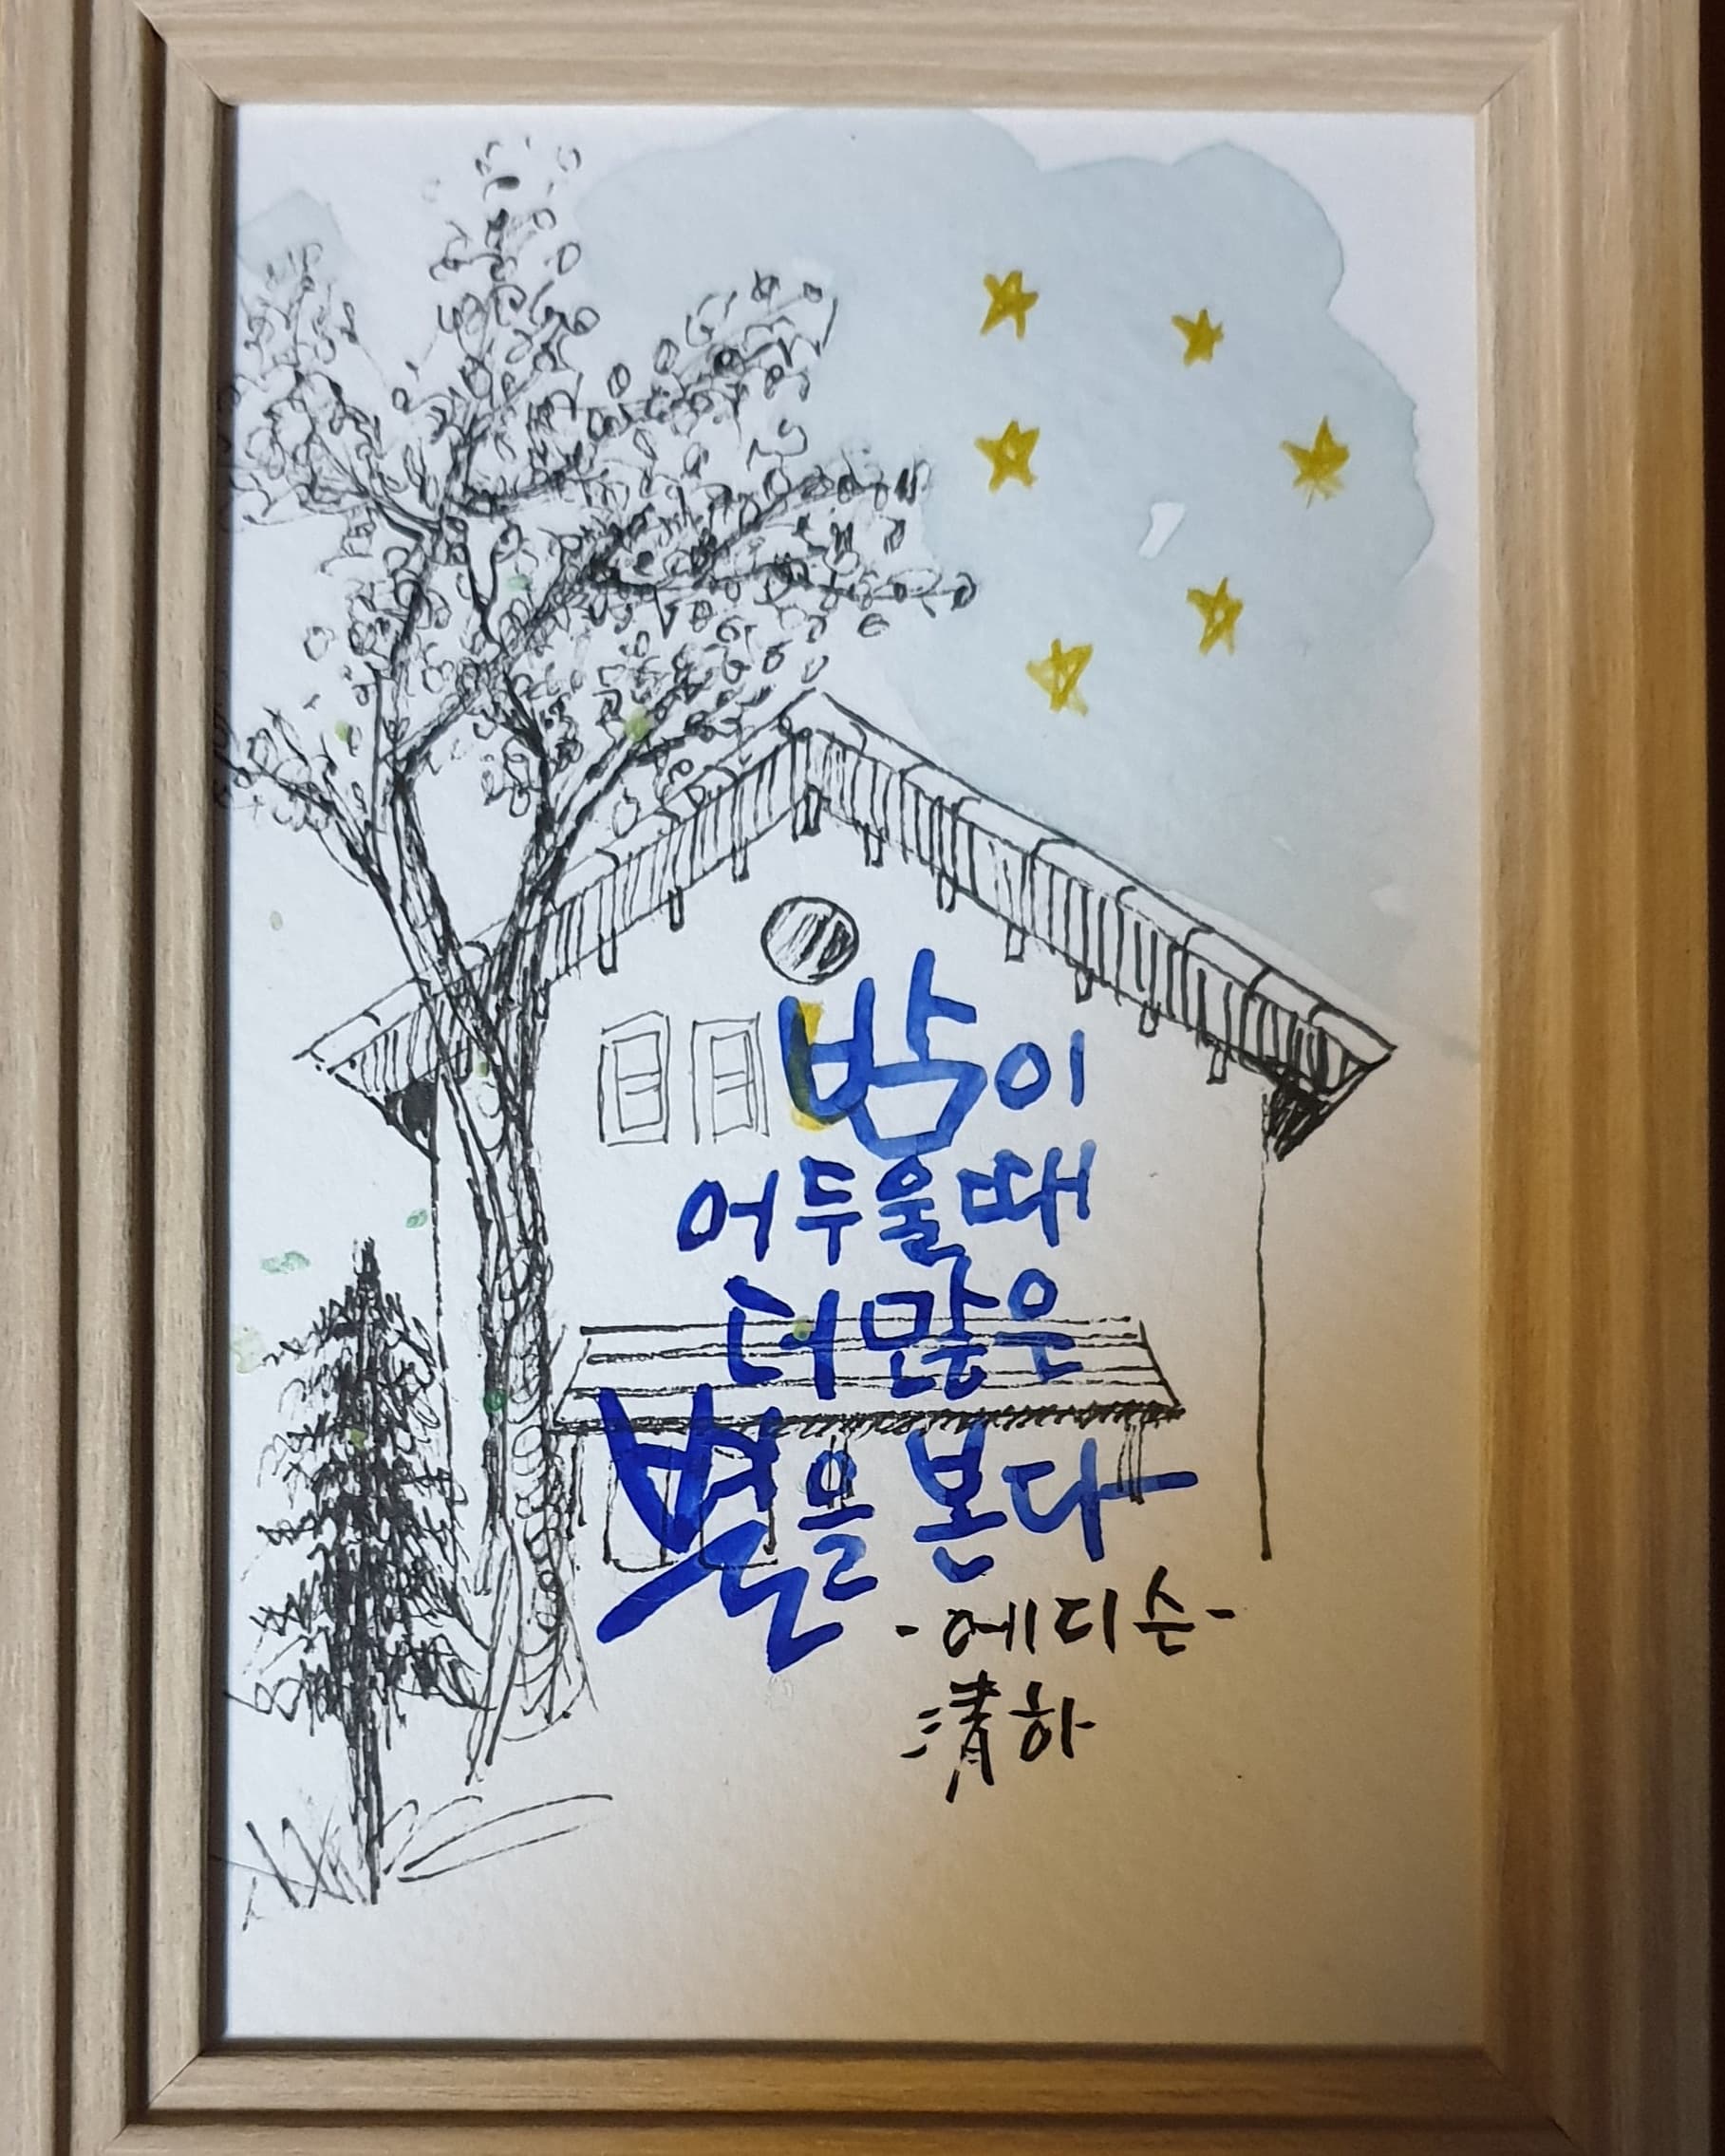 밤이
어두울 때
더 많은
별을 본다
-에디슨-
清하